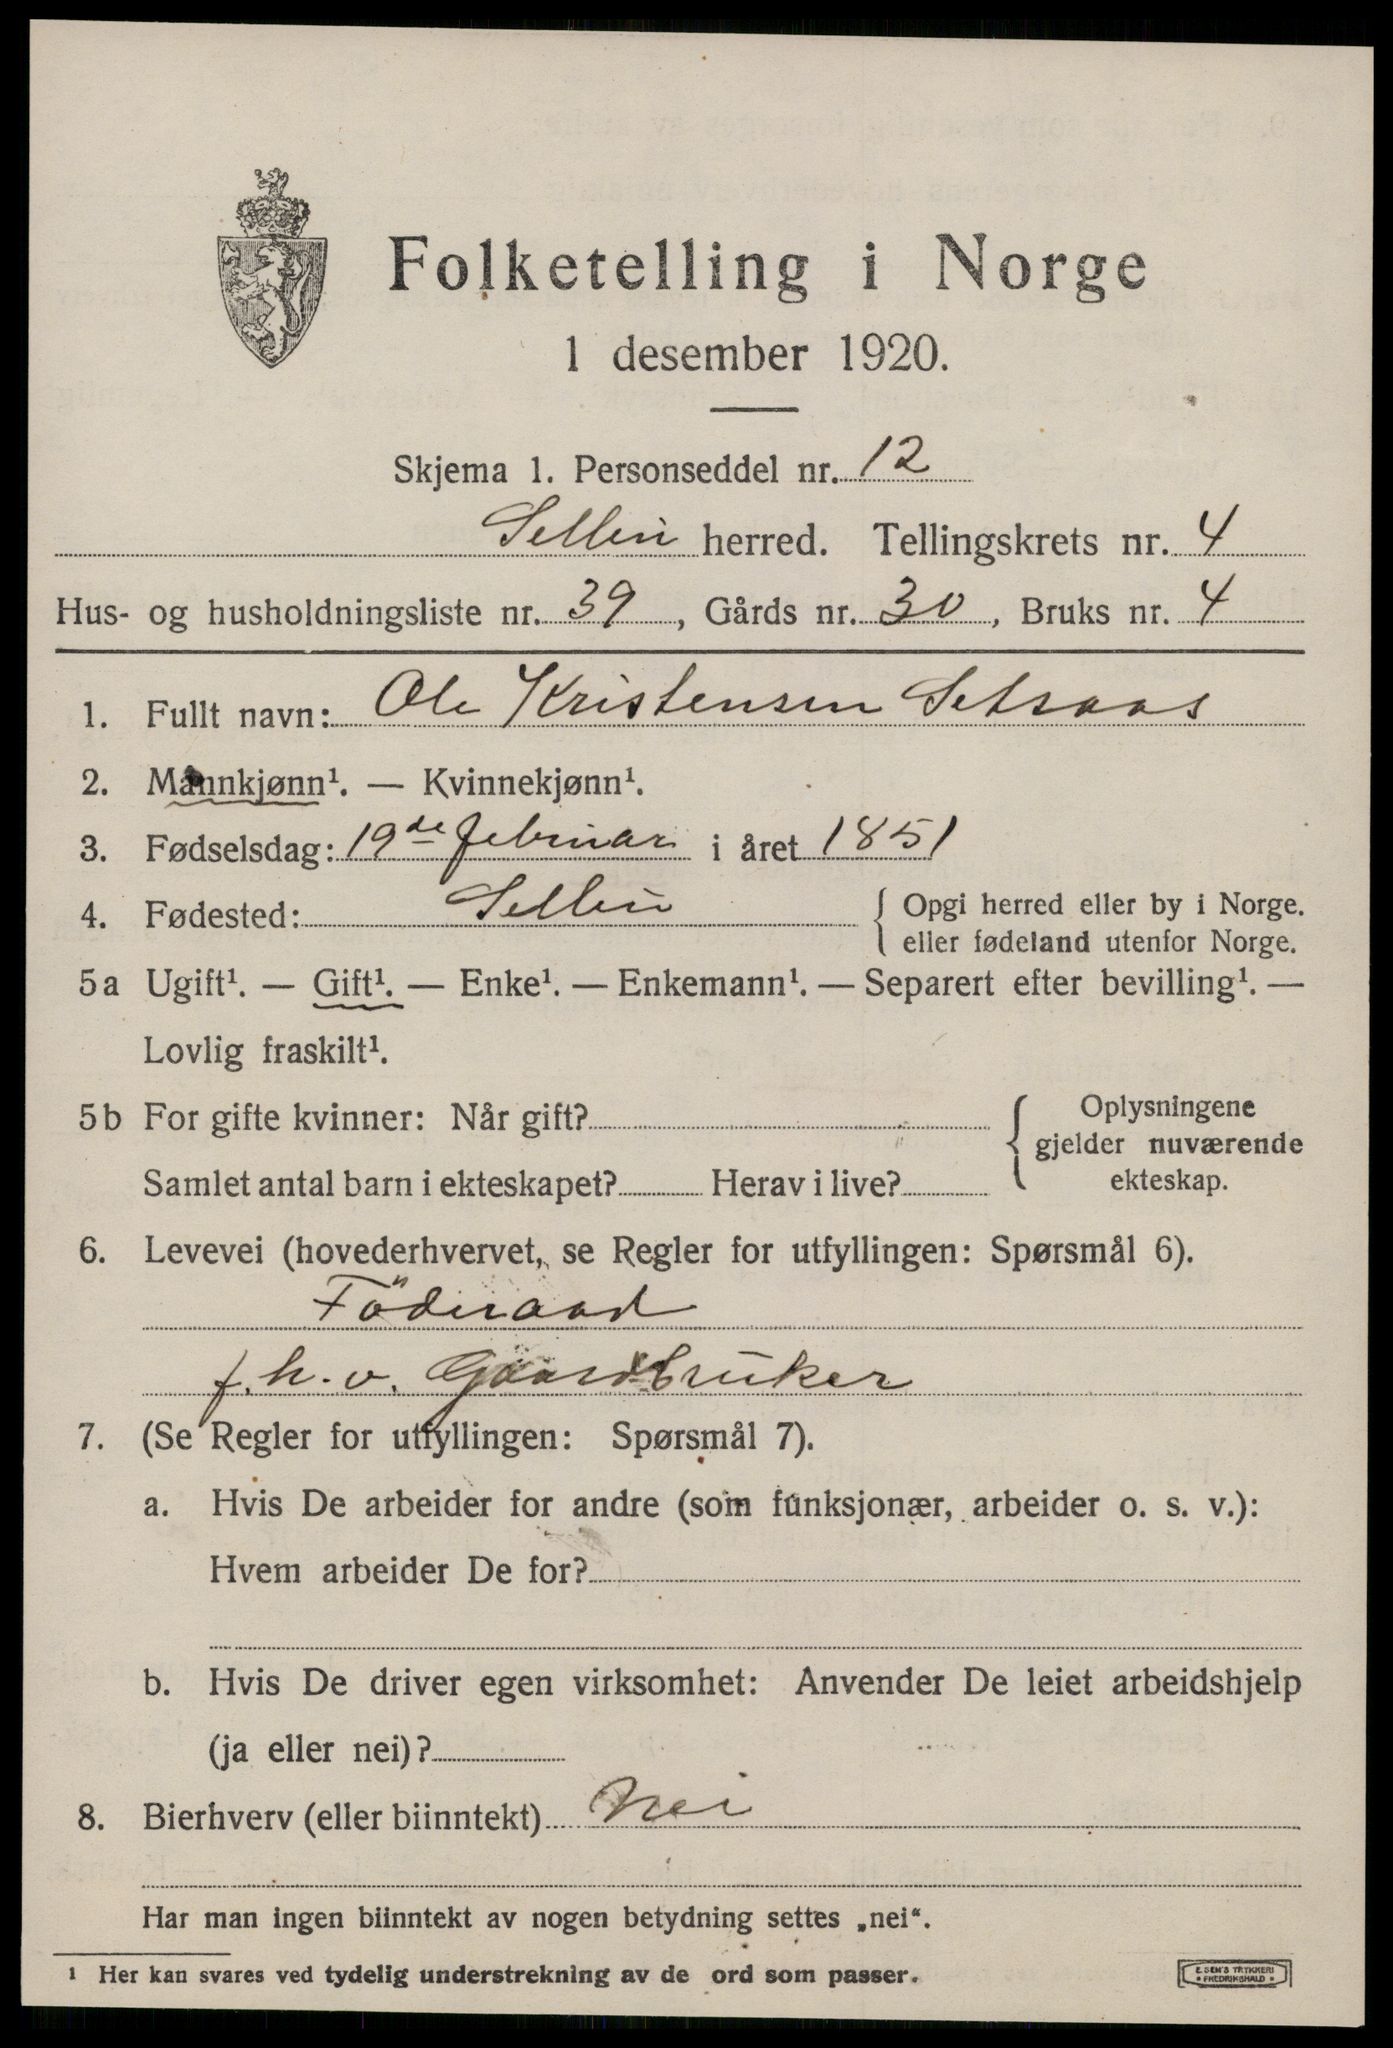 Folketelling i Norge
1 desember 1920.
Skjema 1. Personseddel nr. 12
Selbu herred. Tellingskrets nr. 4
Hus- og husholdningsliste nr. 39, Gårds nr. 30, Bruks nr. 4
1. Fullt navn: Ole Kristensen Setsaas
2. Mannkjønn¹. — Kvinnekjønn¹.
3. Fødselsdag: 19de februar i året 1851
4. Fødested: Selbu { Opgi herred eller by i Norge.
eller fødeland utenfor Norge.
5a Ugift¹. — Gift¹. — Enke¹. — Enkemann¹. — Separert efter bevilling¹. —
Lovlig fraskilt¹.
5b For gifte kvinner: Når gift? { Oplysningene
gjelder nuværende
Samlet antal barn i ekteskapet? Herav i live? ekteskap.
6. Levevei (hovederhvervet, se Regler for utfyllingen: Spørsmål 6).
Föderaad
f. h. v. Gaardbruker
7. (Se Regler for utfyllingen: Spørsmål 7).
a. Hvis De arbeider for andre (som funksjonær, arbeider o. s. v.):
Hvem arbeider De for?
b. Hvis De driver egen virksomhet: Anvender De leiet arbeidshjelp
(ja eller nei)?
8. Bierhverv (eller biinntekt) Nei
Har man ingen biinntekt av nogen betydning settes „nei“.
¹ Her kan svares ved tydelig understrekning av de ord som passer.
E. SEM'S TRYKKERI
FREDRIKSHALD